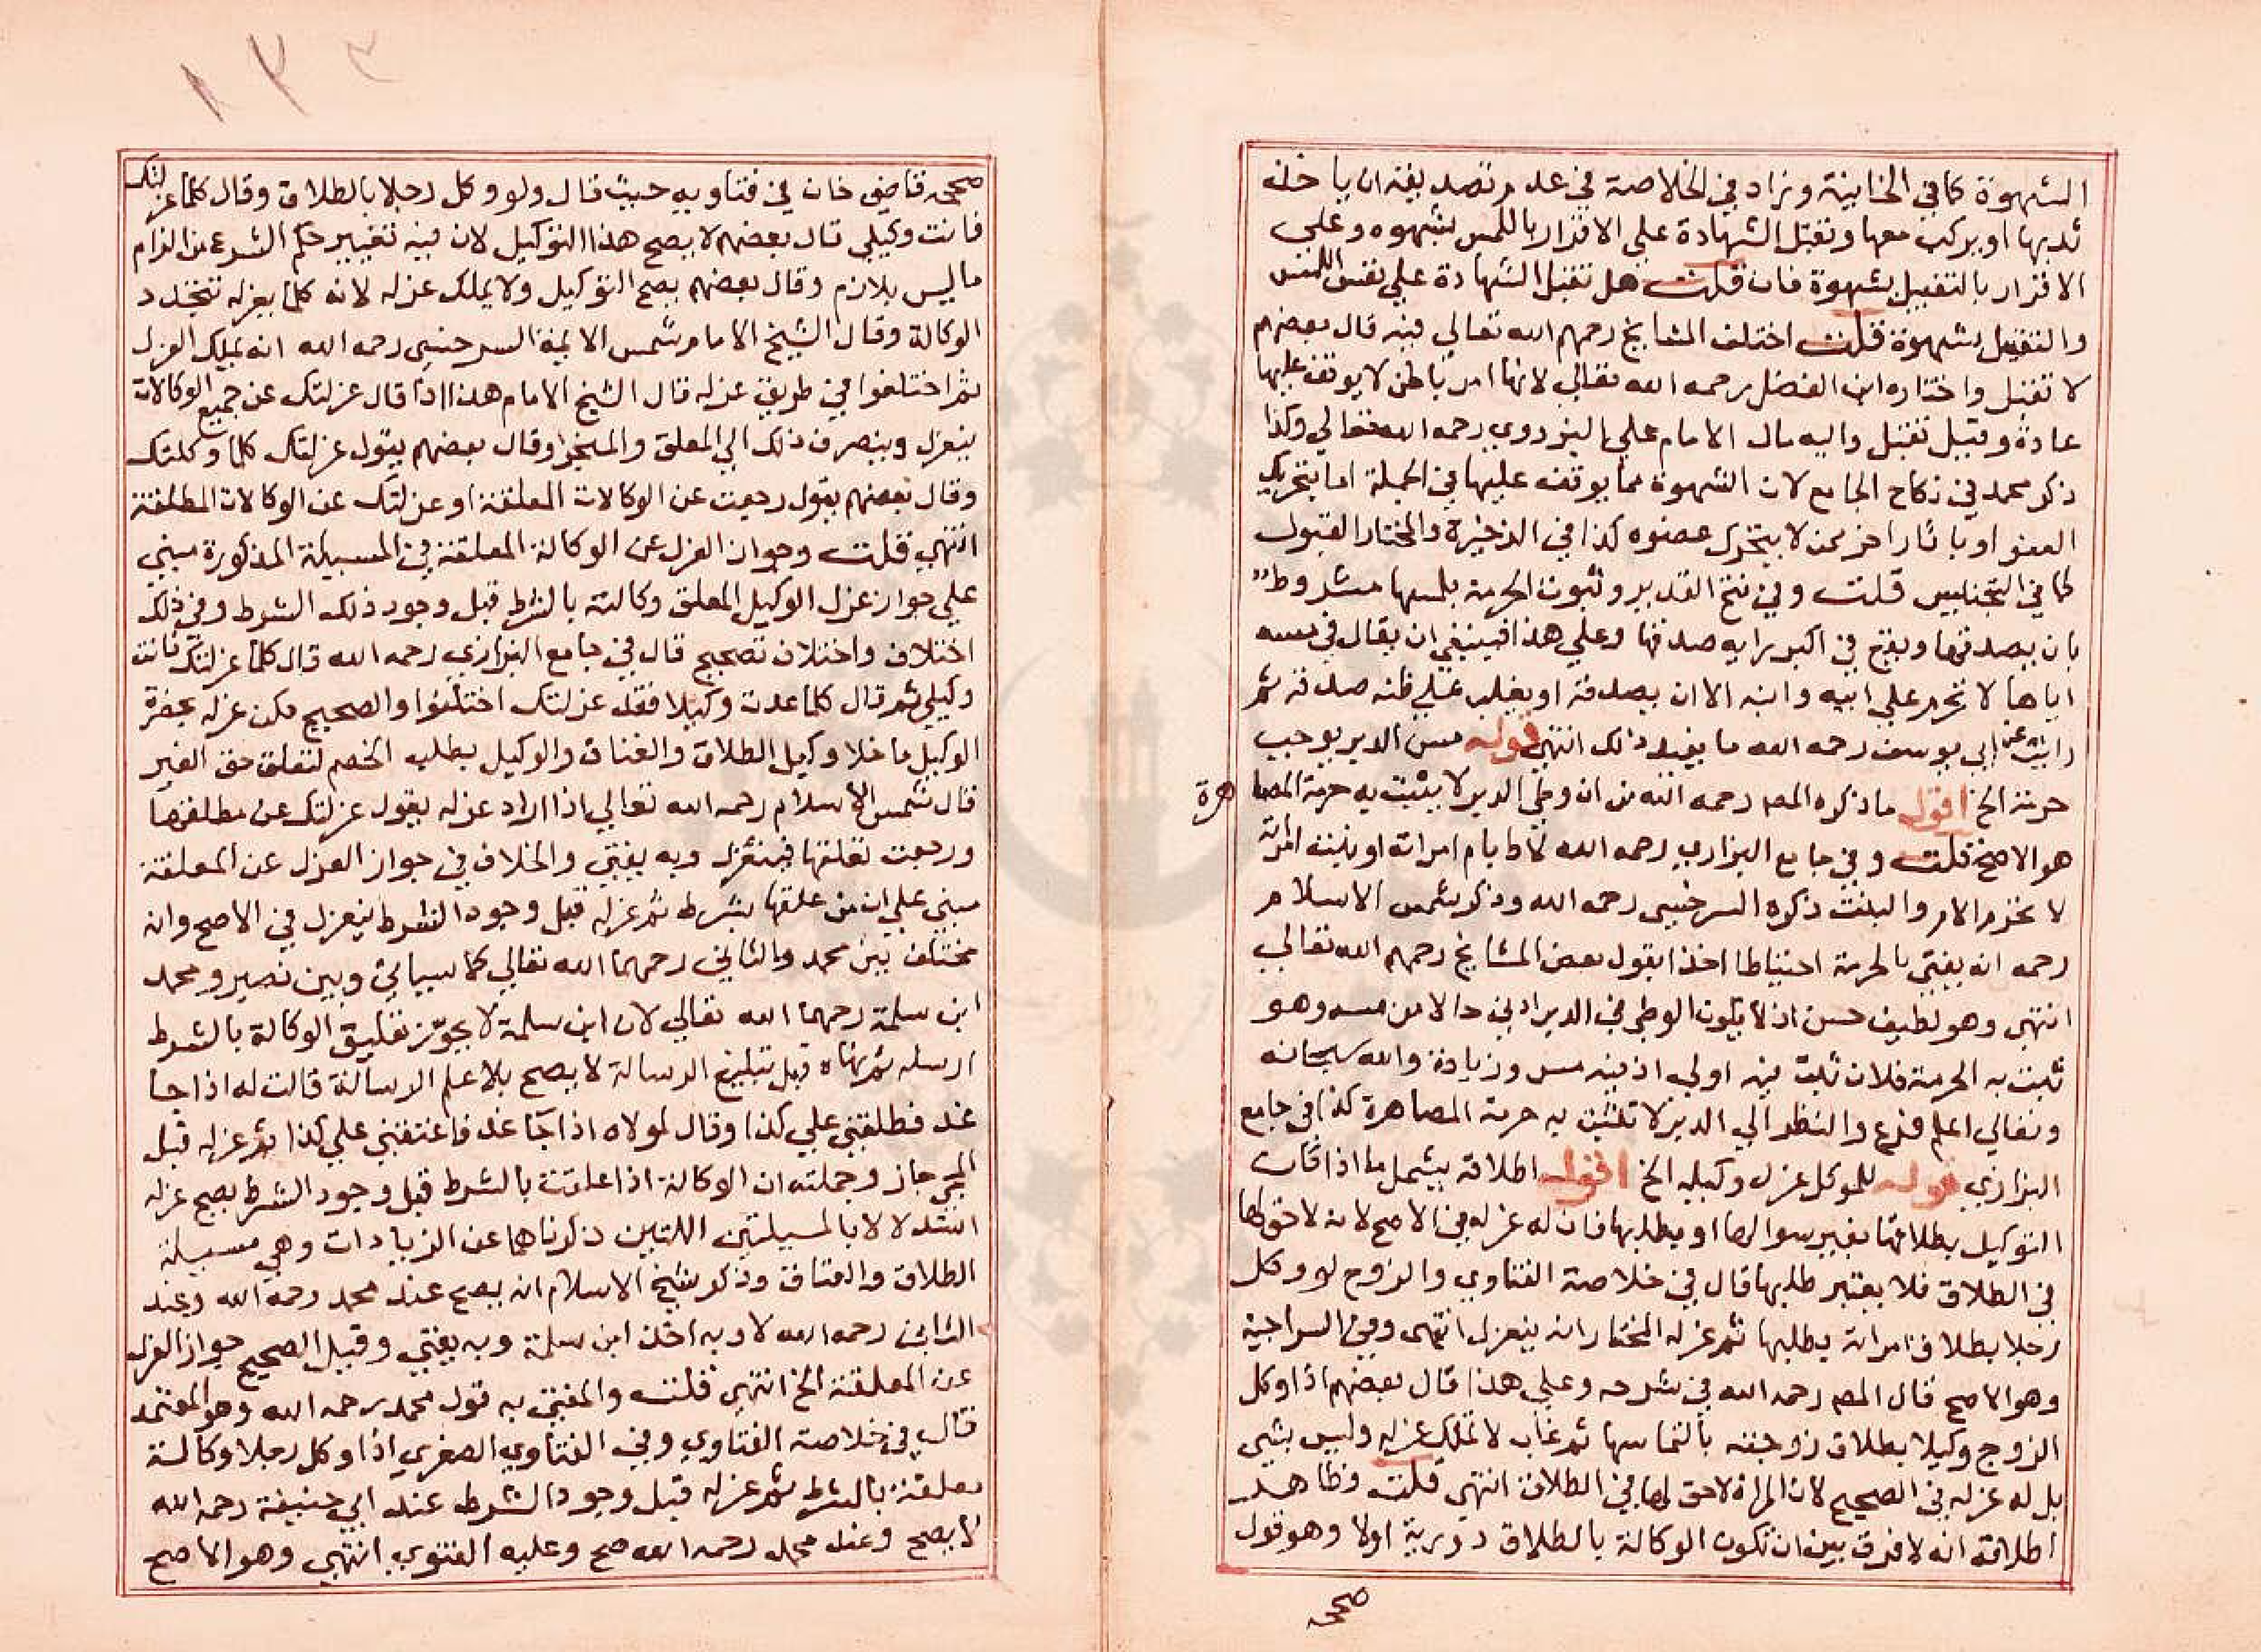 الشهوة كما في الخانية وزاد في الخلاصة في عدم تصديقه ان ياخذ
ثديها او يركب معها وتقبل الشهادة على الاقرار باللمس بشهوة وعلى
الاقرار بالتقبيل بشهوة فان قلت هل تقبل الشهادة على نفس اللمس
والتقبيل بشهوة قلت اختلف المشايخ رحمهم الله تعالى فيه قال بعضهم
لا تقبل واختاره ابن الفضل رحمه الله تعالى لانها امر باطن لا يوقف عليها
عادة وقيل تقبل واليه مال الامام علي البزدوي رحمه الله تعالى وكذا
ذكر محمد في نكاح الجامع لان الشهوة مما يوقف عليها في الجملة اما بتحريك
العضو او باثار اخر ممن لا يتحرك عضوه كذا في الذخيرة والمختار القبول
كما في التجنيس قلت وفي فتح القدير وثبوت الحرمة بلمسها مشروط
بان يصدقها ويقع في اكبر رايه صدقها وعلى هذا فينبغي ان يقال في مسه
اياها لا تحرم على ابيه وابنه الا ان يصدقه او يغلب على ظنه صدقه ثم
رايت عن ابي يوسف رحمه الله ما يفيد ذلك انتهى قوله مس الدبر يوجب
حرمة الخ اقول ما ذكره المص رحمه الله من ان وطئ الدبر لا يثبت به حرمة المصا
هرة
هو الاصح قلت وفي جامع البزازي رحمه الله لاط بام امراته او بنت امراته
لا تحرم الام والبنت ذكره السرخسي رحمه الله وذكر شمس الاسلام
رحمه انه يفتى بالحرمة احتياطا اخذا بقول بعض المشايخ رحمهم الله تعالى
انتهى وهو لطيف حسن اذ لا يكون الوطئ في الدبر ادنى حالا من مسه وهو
ثبت به الحرمة فلان ثبت فيه اولى اذ فيه مس وزيادة والله سبحانه
وتعالى اعلم فرع والنظر الى الدبر لا تثبت به حرمة المصاهرة كذا في جامع
البزازي قوله للموكل عزل وكيله الخ اقول اطلاقه يشمل ما اذا كان
التوكيل بطلاقها بغير سوالها او بطلبها فان له عزله في الاصح لانه لا حق لها
في الطلاق فلا يعتبر طلبها قال في خلاصة الفتاوي والزوج لو وكل
رجلا بطلاق امراته بطلبها ثم عزله المختار انه ينعزل انتهى وفي السراجية
وهو الاصح قال المص رحمه الله في شرحه وعلى هذا قال بعضهم اذا وكل
الزوج وكيلا بطلاق زوجته بالتماسها ثم غاب لا تملك عزله وليس بشي
بل له عزله في الصحيح لان المراة لا حق لها في الطلاق انتهى قلت وظاهر
اطلاقه انه لا فرق بين ان تكون الوكالة بالطلاق دورية اولا وهو قول
صححه
١٢٣
صححه قاضي خان في فتاويه حيث قال ولو وكل رجلا بالطلاق وقال كلما عزلتك
فانت وكيلي قال بعضهم لا يصح هذا التوكيل لان فيه تغيير حكم الشرع من الزام
ما ليس بلازم وقال بعضهم يصح التوكيل ولا يملك عزله لانه كلما يعزله تتجدد
الوكالة وقال الشيخ الامام شمس الايمة السرخسي رحمه الله انه يملك العزل
ثم اختلفوا في طريق عزله قال الشيخ الامام هذا اذا قال عزلتك عن جميع الوكالات
ينعزل وينصرف ذلك الى المعلق والمنجز وقال بعضهم يقول عزلتك كلما وكلتك
وقال بعضهم يقول رجعت عن الوكالات المعلقة او عزلتك عن الوكالات المطلقة
انتهى قلت وجواز العزل عن الوكالة المعلقة في المسيلة المذكورة مبني
على جواز عزل الوكيل المعلق وكالته بالشرط قبل وجود ذلك الشرط وفي ذلك
اختلاف واختلاف تصحيح قال في جامع البزازي رحمه الله قال كلما عزلتك فانت
وكيلي ثم قال كلما عدت وكيلا فقد عزلتك اختلفوا والصحيح عزله بحضرة
الوكيل ما خلا وكيل الطلاق والعتاق والوكيل بطلب الخصم لتعلق حق الغير
قال شمس الاسلام رحمه الله تعالى اذا اراد عزله يقول عزلتك عن مطلقها
ورجعت تعلقها فينعزل وبه يفتى والخلاف في جواز العزل عن المعلقة
مبني على ان من علقها بشرط ثم عزله قبل وجود الشرط ينعزل في الاصح وانه
مختلف بين محمد والثاني رحمهما الله تعالى كما سيأتي وبين نصير ومحمد
ابن سلمة رحمهما الله تعالى لان ابن سلمة لا يجوز تعليق الوكالة بالشرط
ارسله ثم نهاه قبل تبليغ الرسالة لا يصح بلا علم الرسالة قالت له اذا جا
غد فطلقني على كذا وقال لمولاه اذا جا غد فاعتقني على كذا ثم عزله قبل
المجئ جاز وجملته ان الوكالة اذا علقت بالشرط قبل وجود الشرط يصح عزله
استدلالا بالمسيلتين اللتين ذكرناهما عن الزيادات وهي مسيلة
الطلاق والعتاق وذكر شيخ الاسلام ان يصح عند محمد رحمه الله وعند
الثاني رحمه الله لا وبه اخذ ابن سلمة وبه يفتى وقيل الصحيح جواز العزل
عن المعلقة الخ انتهى قلت والمفتى به قول محمد رحمه الله وهو المعتمد
قال في خلاصة الفتاوي وفي الفتاوي الصغرى اذا وكل رجلا وكالة
معلقة بالشرط ثم عزله قبل وجود الشرط عند ابي حنيفة رحمه الله
لا يصح وعند محمد رحمه الله صح وعليه الفتوى انتهى وهو الاصح